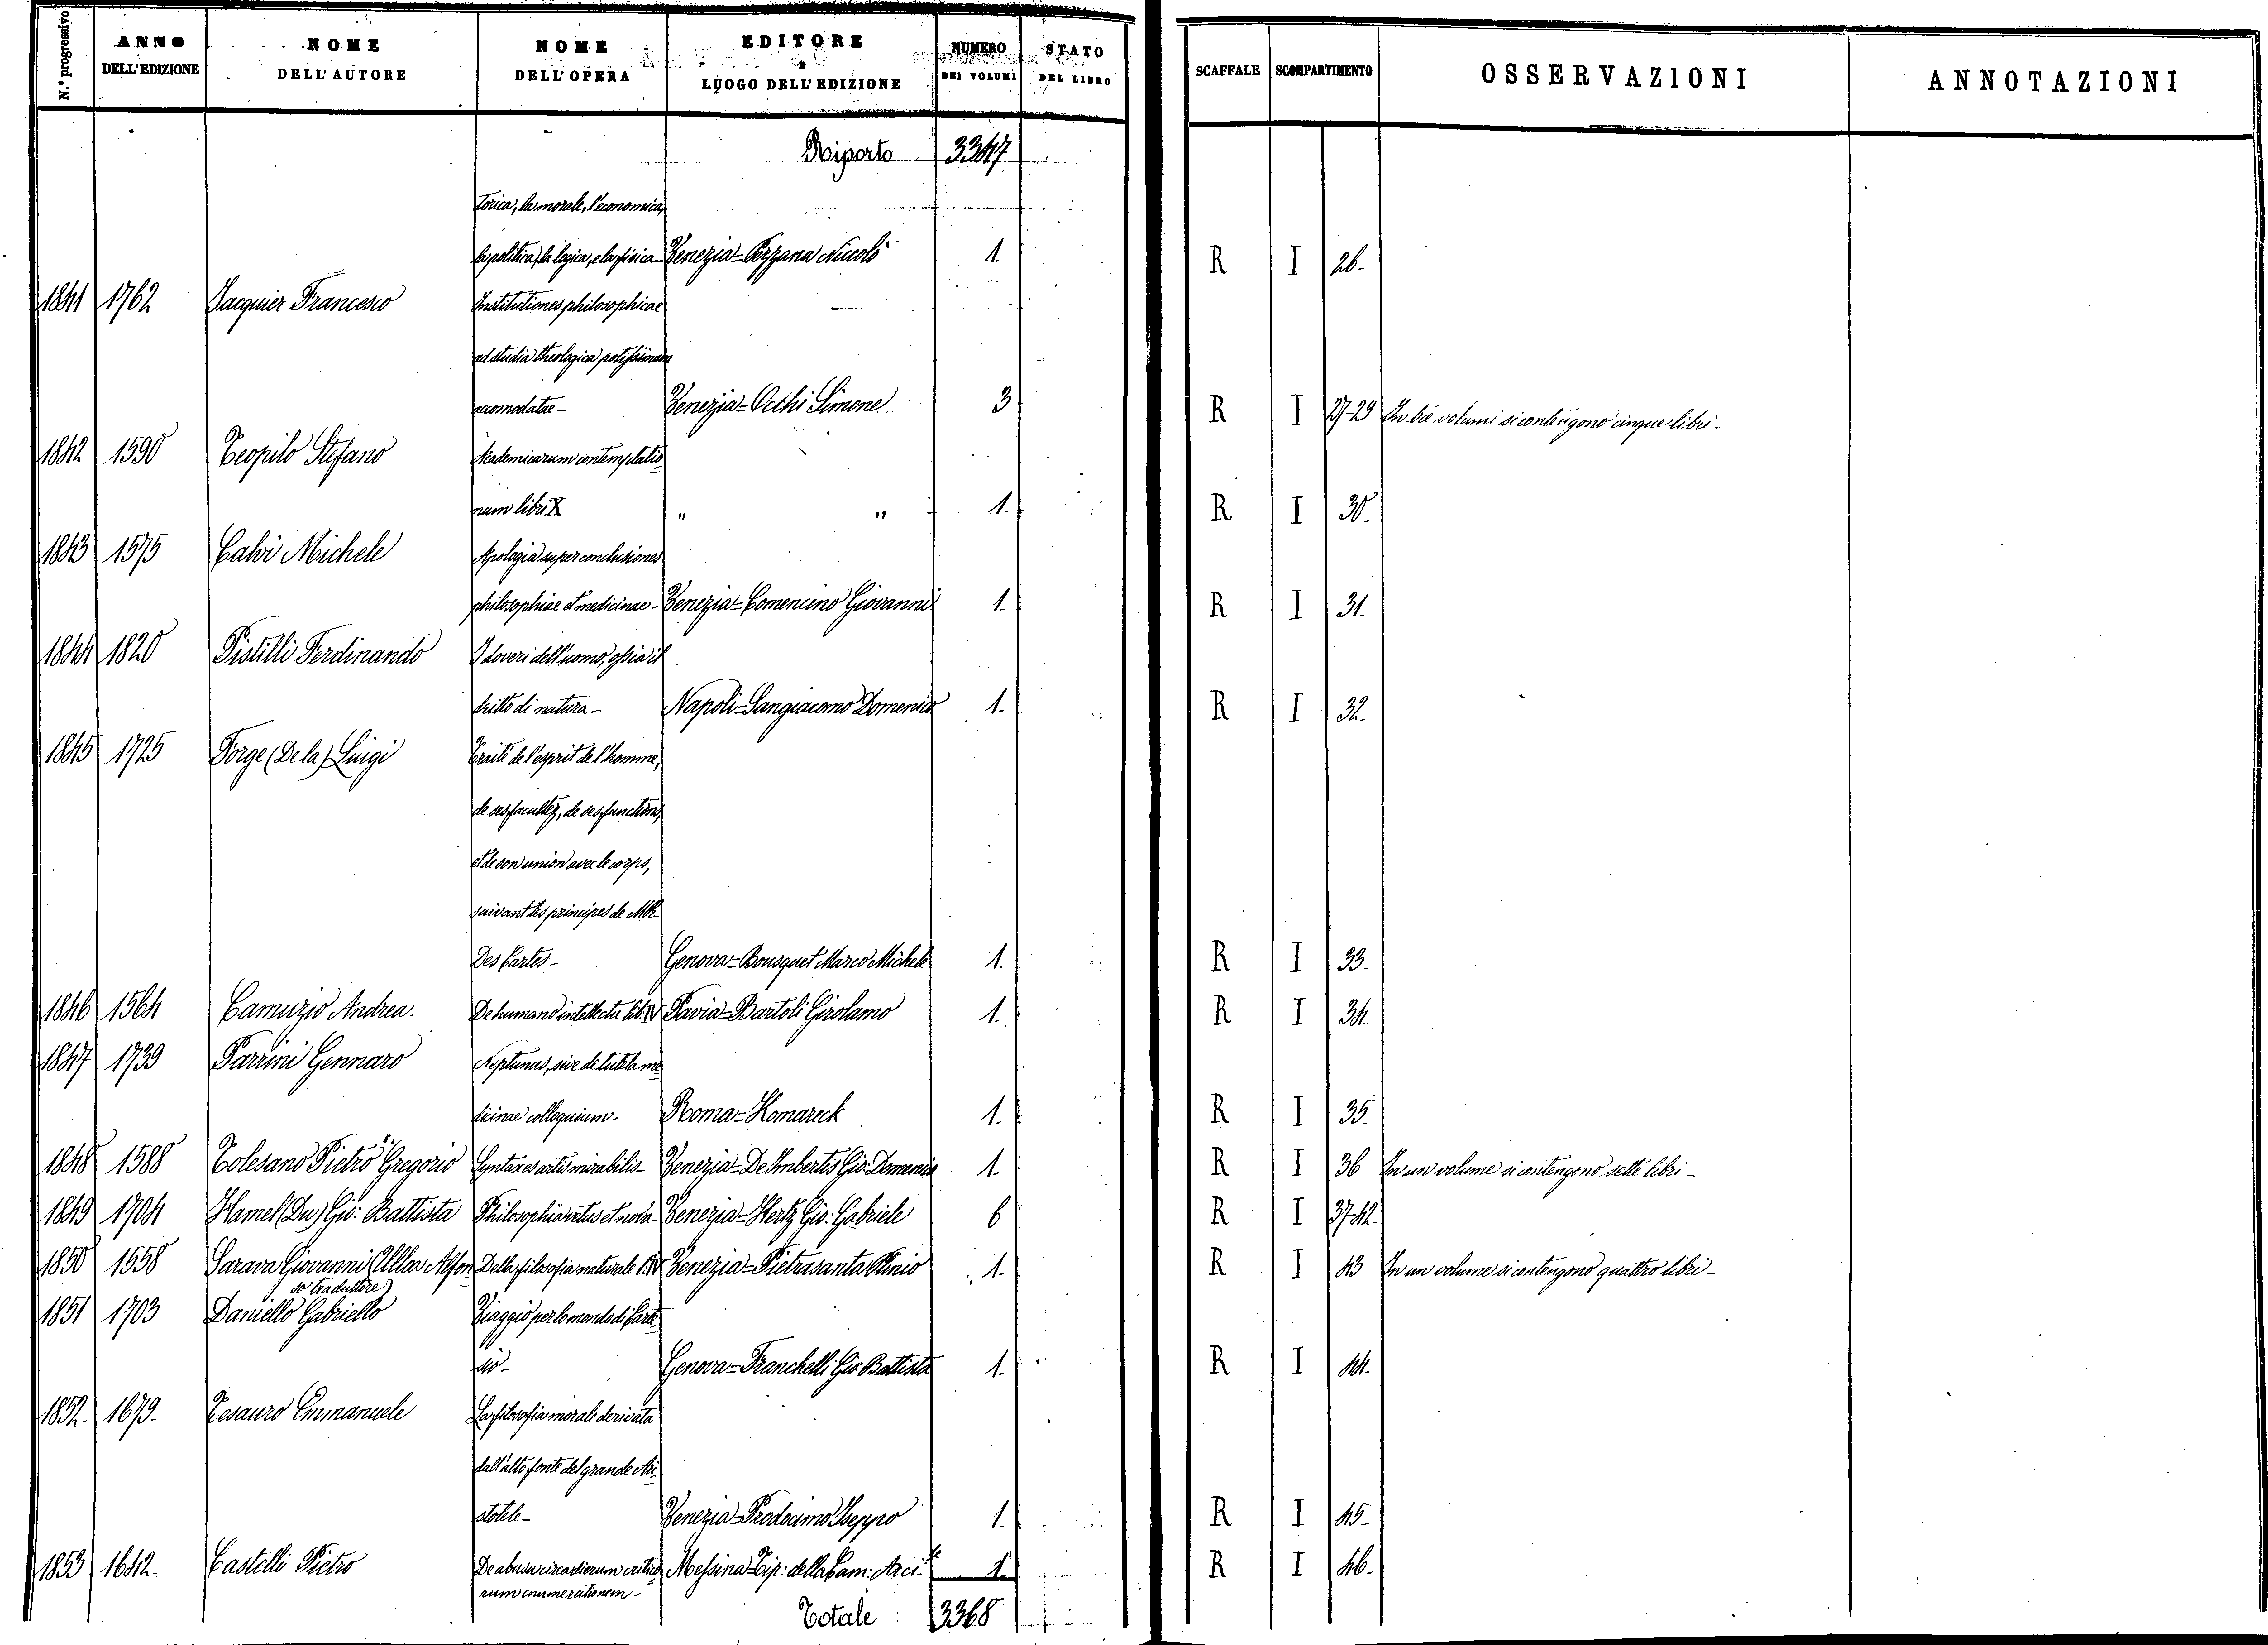 N.° progressivo ANNO DELL'EDIZIONE NOME DELL'AUTORE NOME DELL'OPERA EDITORE e LUOGO DELL'EDIZIONE NUMERO DEI VOLUMI STATO DEL LIBRO SCAFFALE SCOMPARTIMENTO OSSERVAZIONI ANNOTAZIONI
Riporto 3347
torica, la morale, l'economica,
la politica, la logica, e la fisica Venezia - Pezzana Niccolò 1. R I 26.
1841 1762 Jacquier Francesco Institutiones philosophicae
ad studia theologica potissimum
accomodatae - Venezia - Occhi Simone 3 R I 27-29 In tre volumi si contengono cinque libri -
1842 1590 Teopilo Stefano Academicarum contemplatio
num libri X " " 1. R I 30.
1843 1575 Calvi Michele Apologia super conclusiones
philosophiae et medicinae - Venezia - Comencino Giovanni 1. R I 31.
1844 1820 Pistilli Ferdinando I doveri dell'uomo, ossia il
dritto di natura - Napoli - Sangiacomo Domenico 1. R I 32.
1845 1725 Forge (De la) Luigi Traité de l'esprit de l'homme,
de ses facultez, de ses functions,
et de son union avec le corps,
suivant les principes de Mr.
Des Cartes - Genova - Bousquet Marco Michele 1. R I 33.
1846 1564 Camuzio Andrea. De humano intellectu lib. IV Pavia - Bartoli Girolamo 1. R I 34.
1847 1739 Parrini Gennaro Neptunus, sive de tutela me
dicinae colloquium - Roma - Komareck 1. R I 35.
1848 1588 Tolesano Pietro Gregorio Syntaxes artis mirabilis - Venezia - De Imbertis Gio: Domenico 1. R I 36 In un volume si contengono sette libri -
1849 1704 Hamel (Du) Gio: Battista Philosophia vetus et nova - Venezia - Hertz Gio: Gabriele 6 R I 37-42.
1850 1558 Sarava Giovanni (Ulloa Alfon Della filosofia naturale l. IV Venezia - Pietrasanta Plinio 1. R I 43 In un volume si contengono quattro libri -
so traduttore)
1851 1703 Daniello Gabriello Viaggio per lo mondo di Carte
sio - Genova - Franchelli Gio Battista 1. R I 44.
1852. 1679. Tesauro Emmanuele La filosofia morale derivata
dall'alto fonte del grande Ari
stotele - Venezia - Prodocimo Iseppo 1. R I 45.
1853 1642. Castelli Pietro De abusu Messina - Tip: della Cam: Arci. 1. R I 46.
rum enumerationem -
Totale 3368